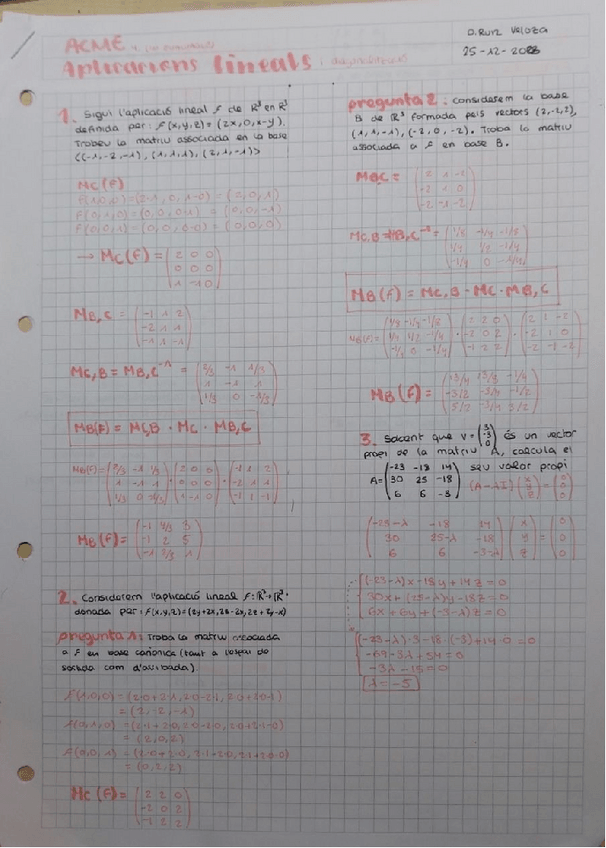 D. Ruiz Veloza
25-12-2023
ACME
Aplicacions lineals i diagonalització
1. Sigui l'aplicació lineal f de R³ en R³
definida per: f(x,y,z)=(2x,0,x-y).
Trobeu la matriu associada en la base
<(-1,-2,-1), (1,1,1), (2,1,-1)>
MC(F)
f(1,0,0)=(2·1,0,1-0) = (2,0,1)
f(0,1,0)=(0,0,0-1) = (0,0,-1)
f(0,0,1)=(0,0,0-0) = (0,0,0)
→ MC(F) = (2 0 0
0 0 0
1 -1 0)
MB,C = (-1 1 2
-2 1 1
-1 1 -1)
MC,B = MB,C⁻¹ = (2/3 -1 1/3
1 -1 1
1/3 0 -1/3)
MB(F) = MC,B · MC · MB,C
MB(F) = (2/3 -1 1/3
1 -1 1
1/3 0 -1/3) · (2 0 0
0 0 0
1 -1 0) · (-1 1 2
-2 1 1
-1 1 -1)
MB(F) = (-1 4/3 3
-1 2 5
-1 2/3 1)
2. Considerem l'aplicació lineal f: R³→R³
donada per: f(x,y,z)=(2y+2x,2z-2x,2z+2y-x)
pregunta 1: Troba la matriu associada
a f en base canònica (tant a l'espai de
sortida com d'arribada).
f(1,0,0) = (2·0+2·1,2·0-2·1,2·0+2·0-1)
= (2,-2,-1)
f(0,1,0) = (2·1+2·0,2·0-2·0,2·0+2·1-0)
= (2,0,2)
f(0,0,1) = (2·0+2·0,2·1+2·0,2·1+2·0-0)
= (0,2,2)
MC(F) = (2 2 0
-2 0 2
-1 2 2)
pregunta 2: Considerem la base
B de R³ formada pels vectors (2,-2,2),
(1,1,-1), (-2,0,-2). Troba la matriu
associada a f en base B.
MB,C = (2 1 -2
-2 1 0
-2 -1 -2)
MC,B = MB,C⁻¹ =
MB(F) = MC,B · MC · MB,C
MB(F) =
· (2 2 0
-2 0 2
-1 2 2) · (2 1 -2
-2 1 0
-2 -1 -2)
MB(F) =
3. Sabent que v = (3
-3
0) és un vector
propi de la matriu A, calcula el
seu valor propi
A = (-23 -18 14
30 25 -18
6 6 -3)
(A-λI)(x
y
z) = (0
0
0)
(-23-λ -18 14
30 25-λ -18
6 6 -3-λ) (x
y
z) = (0
0
0)
(-23-λ)x-18y+14z=0
30x+(25-λ)y-18z=0
6x+6y+(-3-λ)z=0
(-23-λ)·3-18·(-3)+14·0=0
-69-3λ+54=0
-3λ-15=0
λ=-5